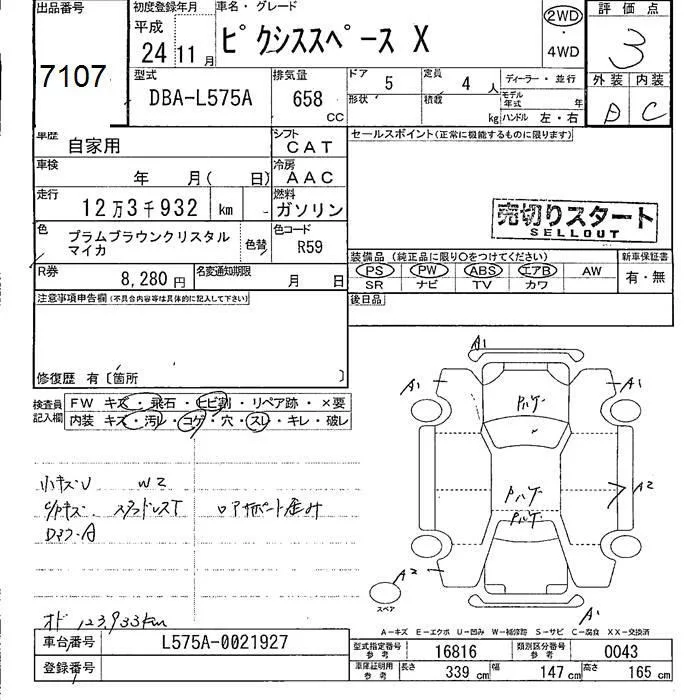 出品番号
7107
初度登録年月
平成
24 11月
車名・グレード
ピクシススペース X
2WD
・
4WD
評価点
3
外装 内装
D C
型式
DBA-L575A
排気量
658
CC
ドア 5
定員 4 人
形状
積載 kg
ディーラー・並行
モデル年式 年
ハンドル 左・右
車歴
自家用
シフト
CAT
セールスポイント(正常に機能するものに限ります)
車検
年 月( 日)
冷房
AAC
走行
12万3千932 km
燃料
ガソリン
売切りスタート
SELLOUT
色
プラムブラウンクリスタル
マイカ
色替
色コード
R59
装備品(純正品に限り〇をつけてください)
PS PW ABS エアB AW
SR ナビ TV カワ
新車保証書
有・無
R券
8,280円
名変通知期限
月 日
後日品
注意事項申告欄(不具合内容等は具体的に記入して下さい)
修復歴 有〔箇所 〕
検査員
記入欄
FW キズ・飛石・ヒビ割・リペア跡・×要
内装 キズ・汚レ・コゲ・穴・スレ・キレ・破レ
小キズU W2
C/Pキズ スタッドレスT ロアサポート歪み
オド 123,933km
A1
A1
A1
A2
A2
A1
スペア
A-キズ E-エクボ U-凹み W-補修跡 S-サビ C-腐食 XX-交換済
車台番号
L575A-0021927
登録番号
型式指定番号
参考
16816
類別区分番号
参考
0043
車庫証明用
参考
長さ 339 cm
幅 147 cm
高さ 165 cm